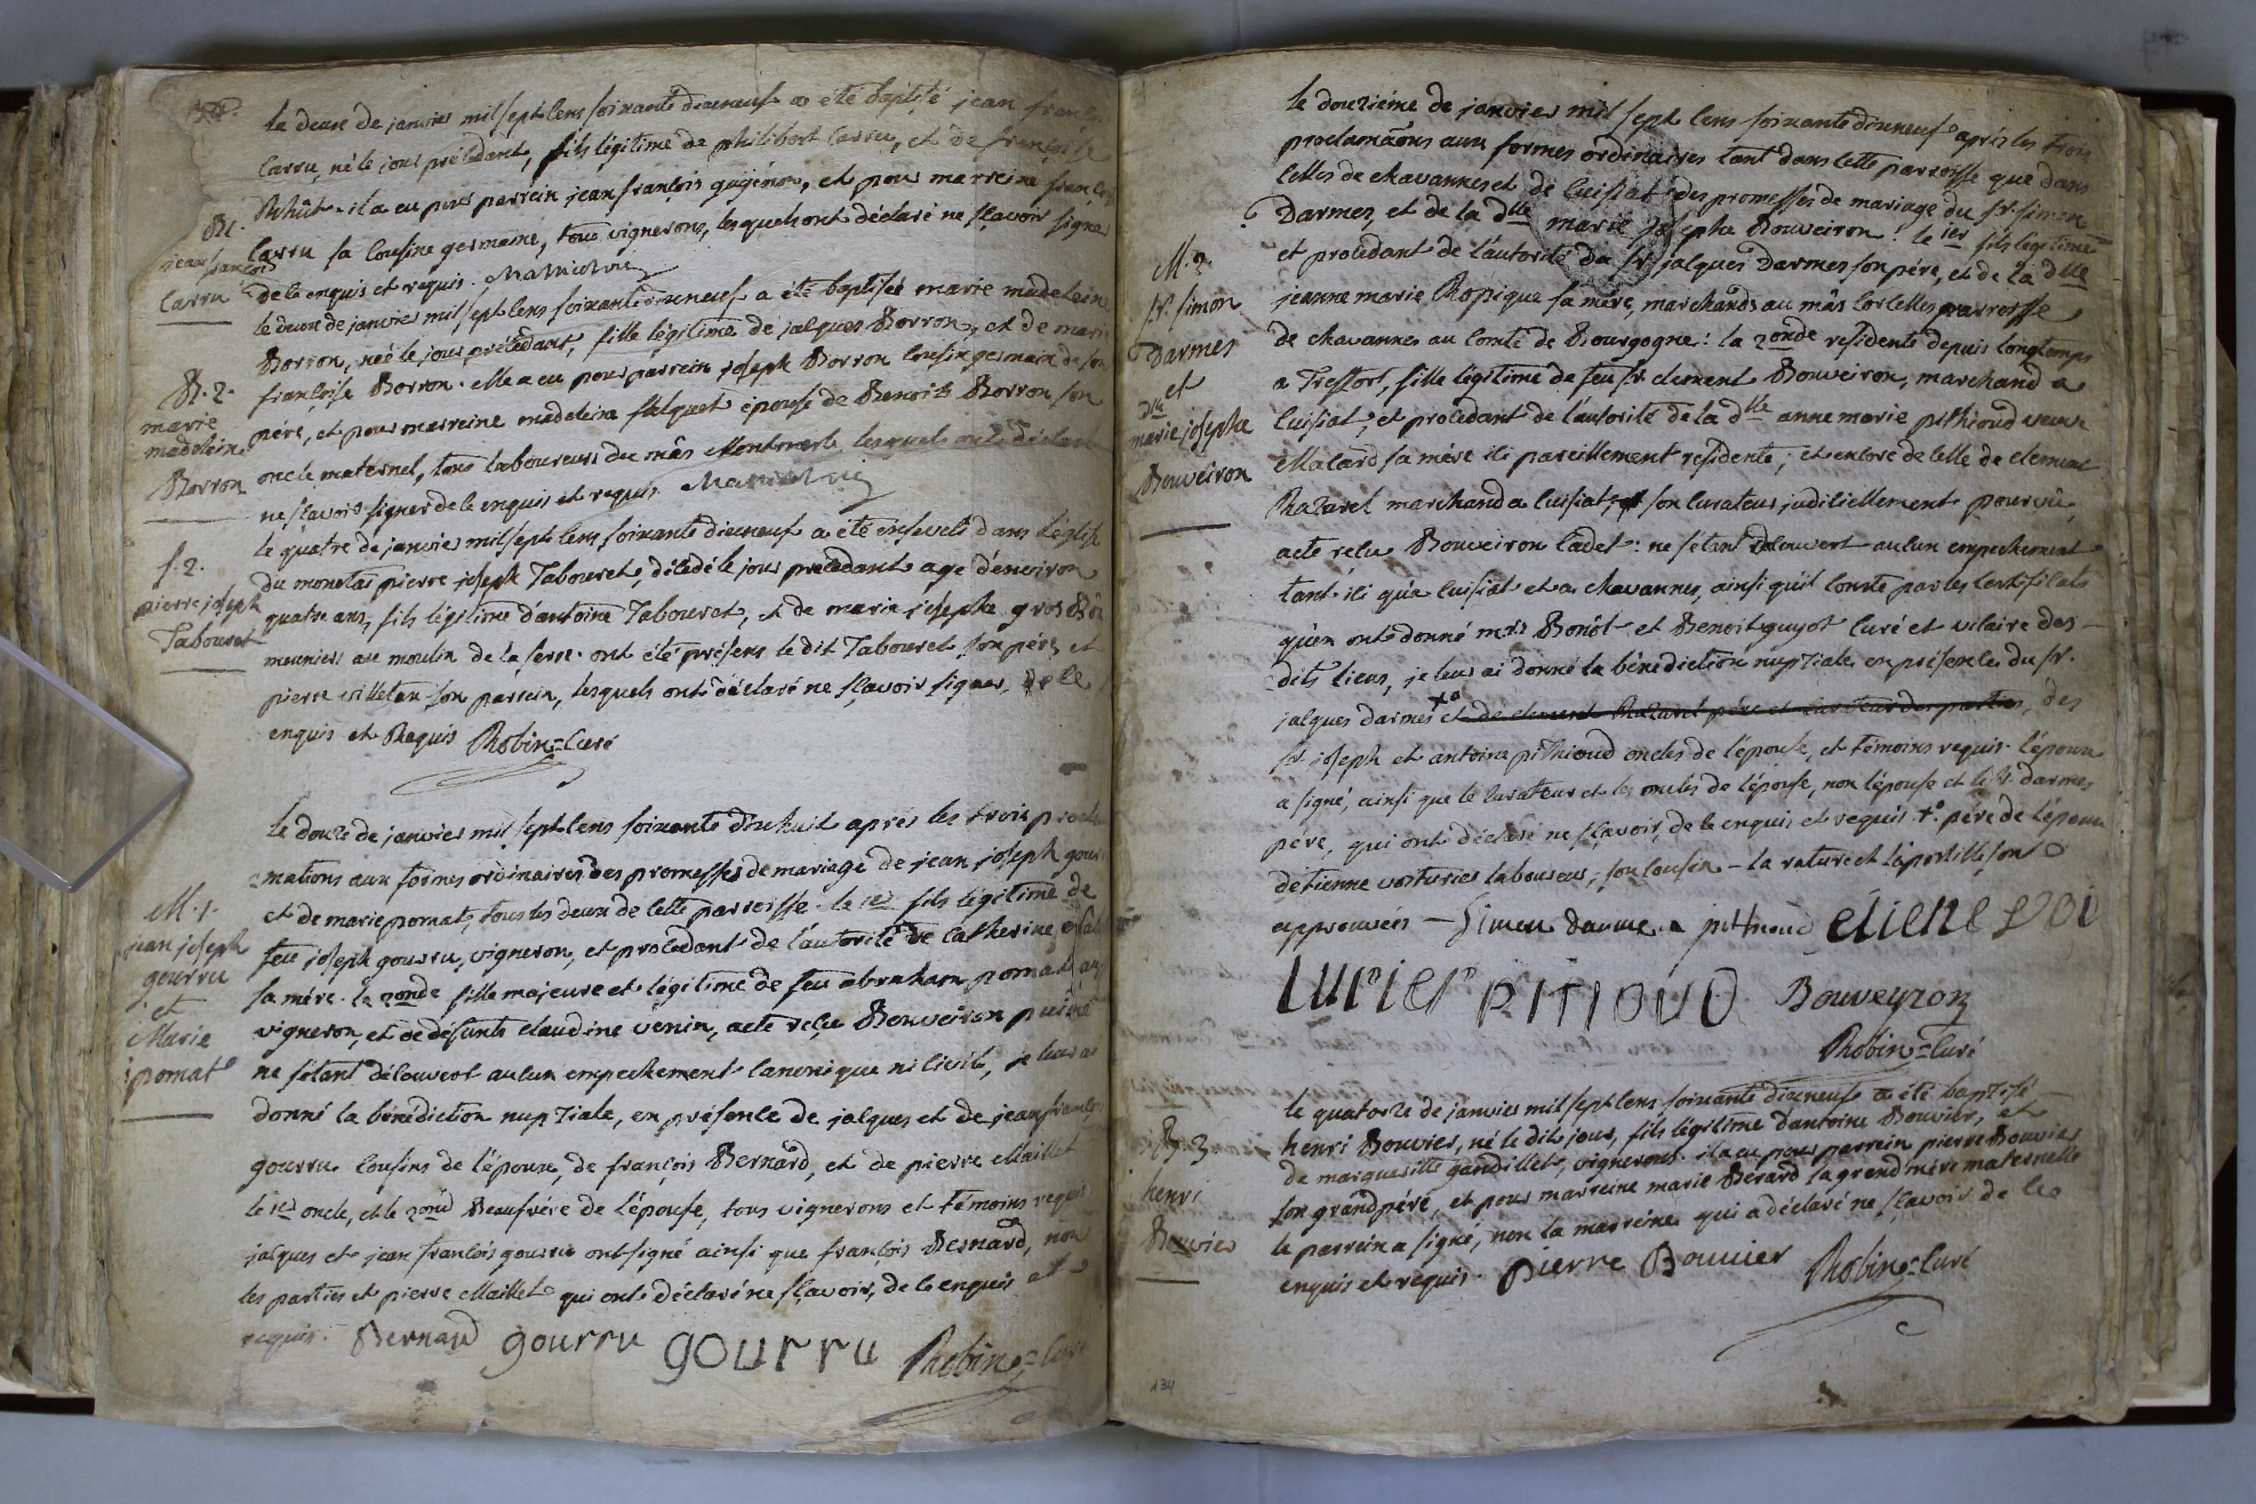 le deux de janvier mil sept cens soixante dixneuf a été baptisé jean françois
Carru, né le jour précédant, fils légitime de philibert Carru, et de françoise
il a eu pour parrein jean françois guyénon, et pour marreine françoise
B1.
jean françois
Carru
Carru sa cousine germaine, tous vignerons, lesquels ont déclaré ne sçavoir signer
de ce enquis et requis.
le deux de janvier mil sept cens soixante dixneuf a été baptisée marie madeleine
Borron, née le jour précédant, fille légitime de jacques Borron, et de marie
B. 2.
marie
madeleine
Borron
françoise Borron. elle a eu pour parrein joseph Borron cousin germain de son
pére, et pour marreine madeleine épouse de Benoit Borron son
oncle maternel, tous laboureurs du mâs lesquels ont déclaré
ne sçavoir signer de ce enquis et requis
le quatre de janvier mil sept cens soixante dixneuf a été enseveli dans l'église
S. 2.
pierre joseph
Tabouret
du monetai pierre joseph Tabouret, décédé le jour précédant agé d'environ
quatre ans, fils légitime d'antoine Tabouret, et de marie josephe gros
meuniers au moulin de la serre. ont été présens le dit Tabouret son pére, et
pierre villetan son parrein, lesquels ont déclaré ne sçavoir signer, de ce
enquis et Requis Robin=Curé
le douze de janvier mil sept cens soixante dixhuit aprés les trois procla
=mations aux formes ordinaires des promesses de mariage de jean joseph gourru
M. 1.
jean joseph
gourru
et
Marie
pomat
et de marie pomat, tous les deux de cette parroisse. le 1er fils légitime de
feu joseph gourru, vigneron, et procedant de l'autorité de Catherine
sa mére. la 2onde fille majeure et légitime de feu abraham pomat
vigneron, et de défunte claudine venin, acte reçu Bouveiron puiné
ne s'étant découvert aucun empechement canonique ni civil, je leur ai
donné la bénédiction nuptiale, en présence de jacques et de jean françois
gourru cousins de l'époux, de françois Bernard, et de pierre Maillet
le 1er oncle, et le 2ond Beaufrére de l'épouse, tous vignerons et témoins requis
jacques et jean françois gourru ont signé ainsi que françois Bernard, non
les parties et pierre Maillet qui ont déclaré ne sçavoir, de ce enquis et
requis. Bernard gourru gourru Robin=Curé
le douziéme de janvier mil sept cens soixante dixneuf aprés les trois
proclamaons aux formes ordinaires tant dans cette parroisse que dans
celles de chavannes et de Cuisiat des promesses de mariage du sr. simon
Darmes, et de la dlle marie josephe Bouveiron. le 1er fils légitime
M. 2.
sr. simon
Darmes
et
dlle
marie josephe
Bouveiron
et procédant de l'autorité du sr. jacques Darmes son pére, et de la dlle
jeanne marie Ropique sa mére, marchands au mâs Corcelles parroisse
de chavannes au Comté de Bourgogne: la 2onde residente depuis longtemps
a Treffort, fille légitime de feu sr. clement Bouveiron, marchand a
Cuisiat, et procédant de l'autorité de la dlle anne marie pithioud veuve
Malard sa mére ici pareillement residente; et encore de celle de clement
Razarel marchand a Cuisiat, son curateur judiciellement pourvu,
acte reçu Bouveiron Cadet: ne s'étant découvert aucun empechement
tant ici qu'a Cuisiat et a chavannes, ainsi qu'il conste par les certificats
qu'en ont donné mrs Bonôt et Benoit guyot Curé et vicaire des
dits lieux, je leur ai donné la bénédiction nuptiale en présence du sr.
jacques darmes +° et de clement Razarel pére et curateur des parties, des
sr. joseph et antoine pithioud oncles de l'épouse, et témoins requis. l'époux
a signé, ainsi que le curateur et les oncles de l'épouse, non l'épouse et le sr. darmes
pére, qui ont déclaré ne sçavoir, de ce enquis et requis +°. pére de l'époux
d'etienne voiturier laboureur, son cousin - la rature et l'apostille son
approuvés - Simon darme pithioud etiene voi
turier pitioud Bouveyron
Robin=Curé
le quatorze de janvier mil sept cens soixante dixneuf a été baptisé
B. 3
henri
Bouvier
henri Bouvier, né le dit jour, fils légitime d'antoine Bouvier, et
de marguerite gandillet, vignerons. il a eu pour parrein pierre Bouvier
son grandpére, et pour marreine marie Bérard sa grand'mére maternelle
le parrein a signé, non la marreine qui a déclaré ne sçavoir de ce
enquis et requis. Pierre Bouvier Robin=Curé
134